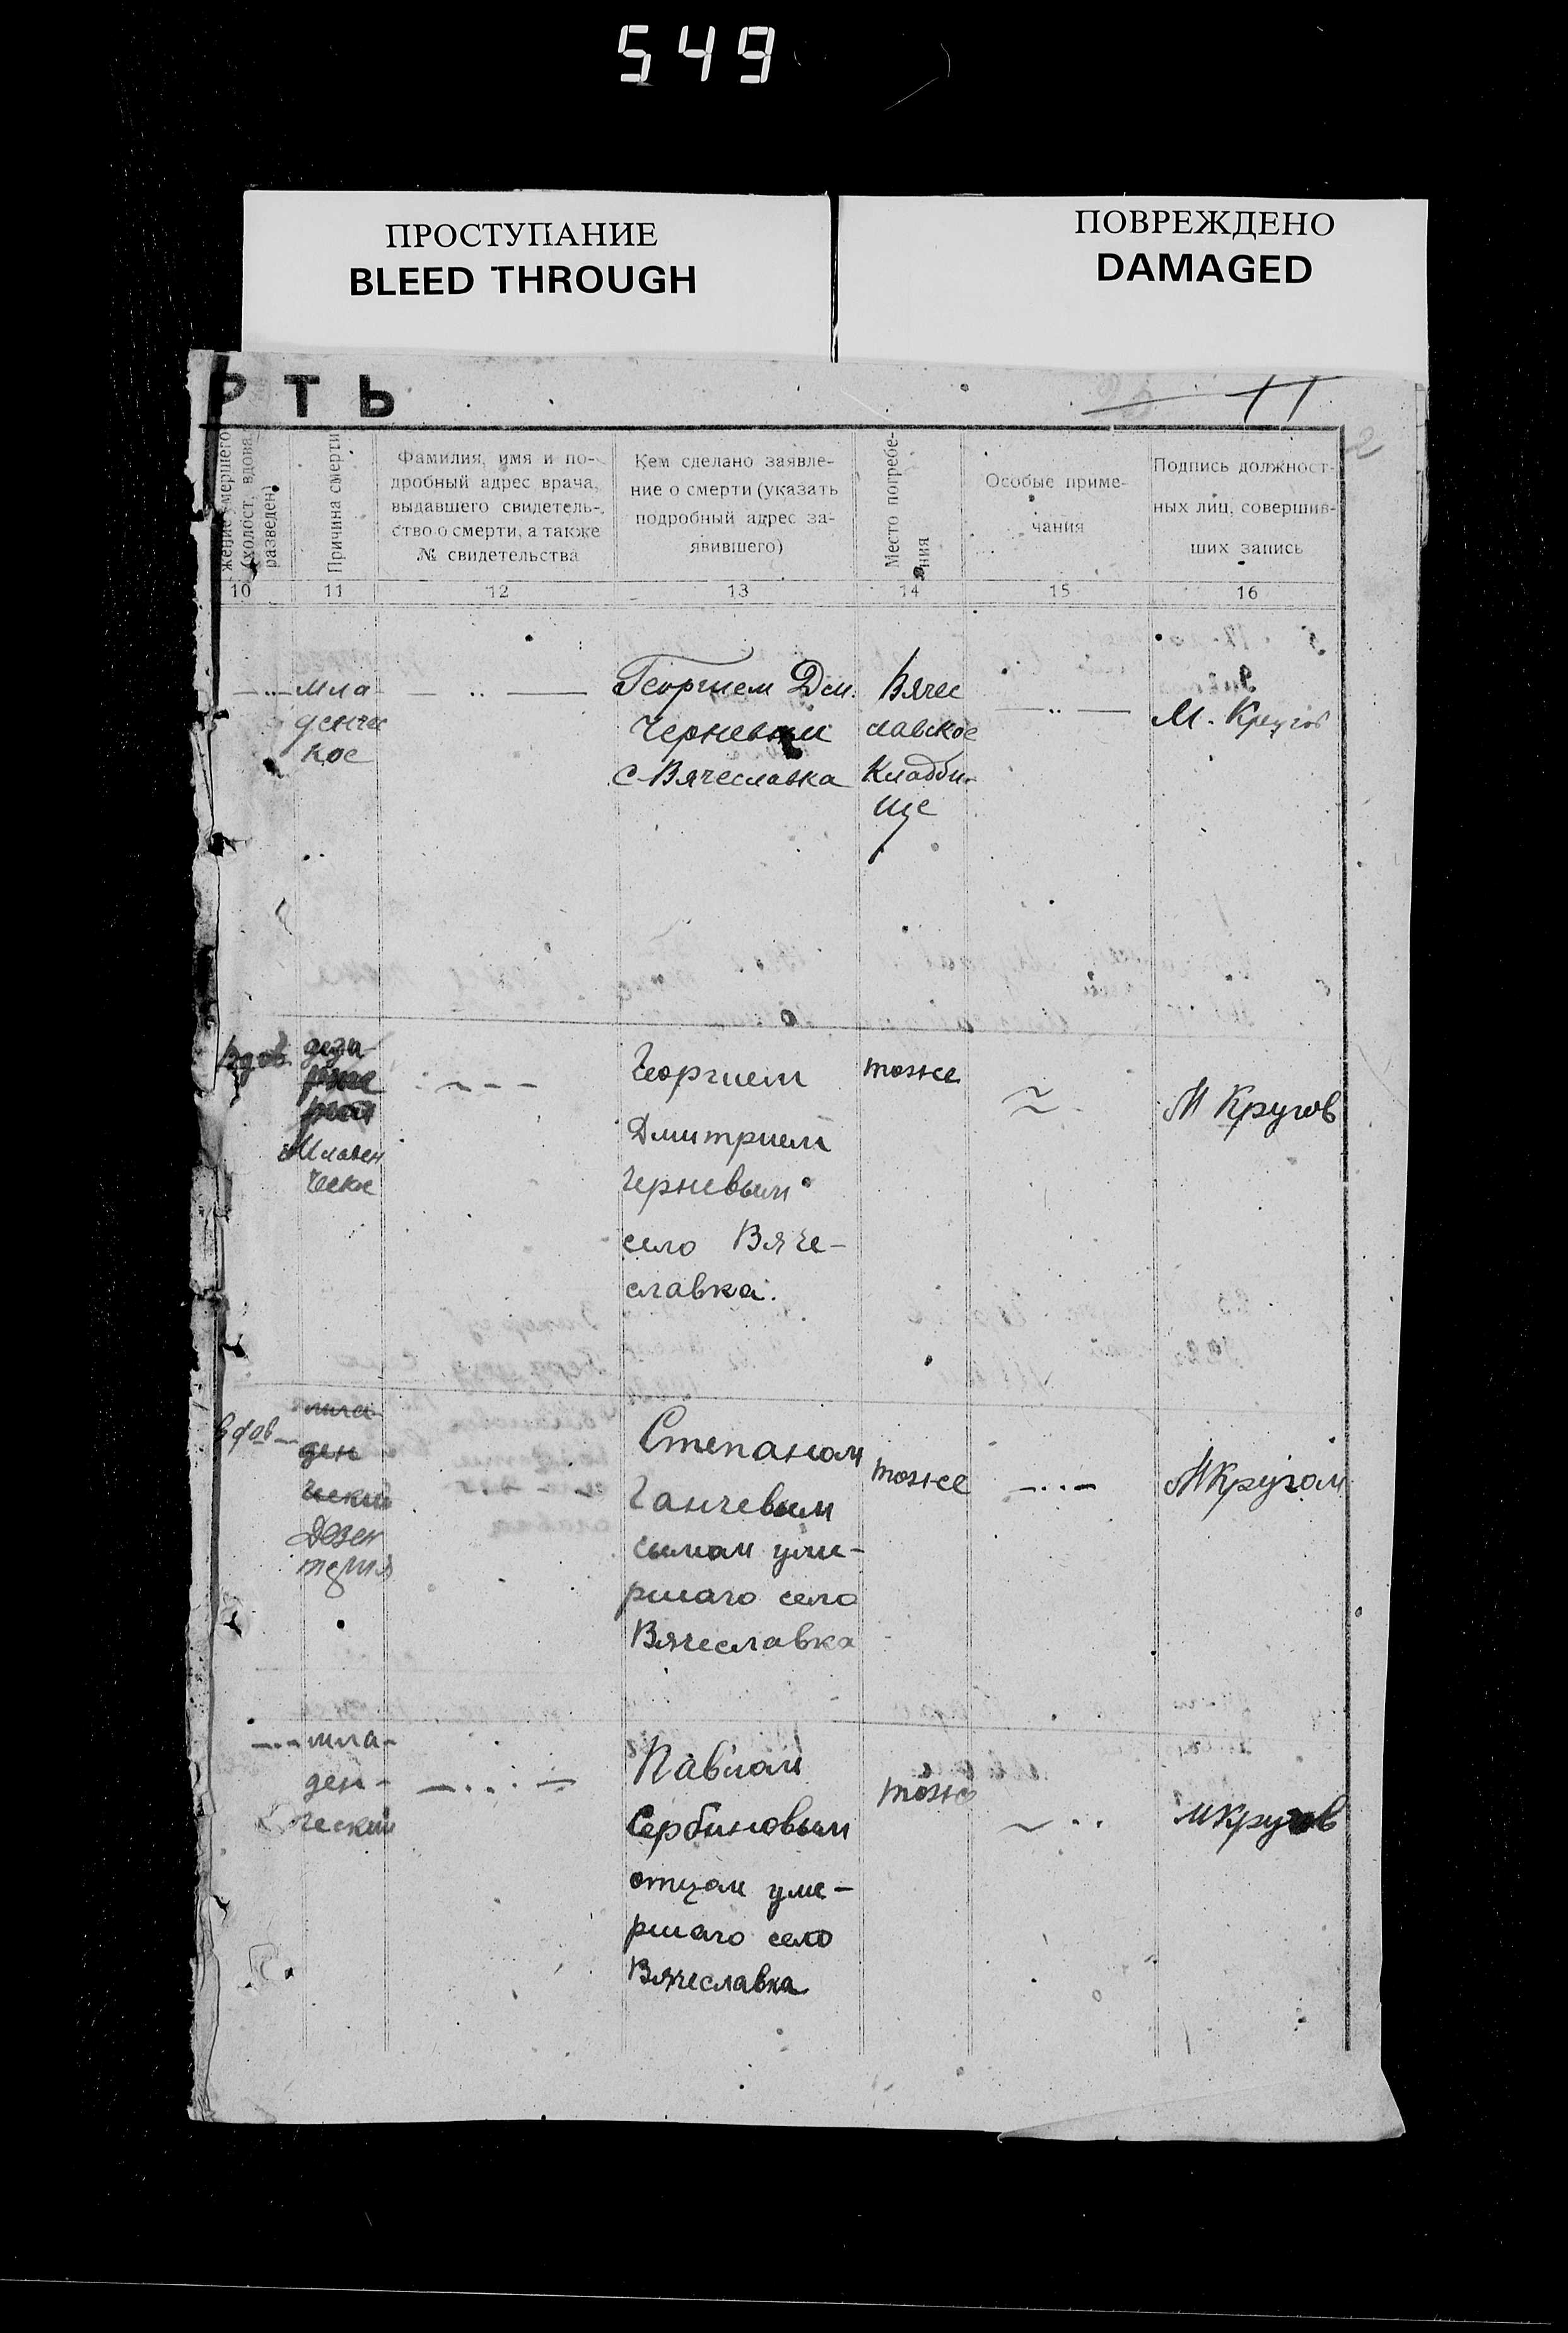 549
ПРОСТУПАНИЕ
BLEED THROUGH
ПОВРЕЖДЕНО
DAMAGED
РТЬ
11
2
жение умершего
(холост, вдова,
разведен)
Причина смерти
Фамилия, имя и по-
дробный адрес врача,
выдавшего свидетель-
ство о смерти, а также
№ свидетельства
Кем сделано заявле-
ние о смерти (указать
подробный адрес за-
явившего)
Место погребе-
ния
Особые приме-
чания
Подпись должност-
ных лиц, совершив-
ших запись
10 11 12 13 14 15 16
мла-
денчес
кое
Георгием Дм.
Черневым
с-Вячеславка
Вячес
лавское
Кладби-
ще
М. Кругов
вдов
дези
Младен
ческое
Георгием
Дмитрием
Черневым
село Вяче-
славка.
тоже
М Кругов
вдов
мла
ден
ческий
Дезен
терия
Степаном
Ганчевым
сыном уме-
ршаго село
Вячеславка
тоже
МКругом
мла-
ден-
ческий
Павлом
Сербиновым
отцом уме-
ршаго село
Вячеславка
тоже
МКругов